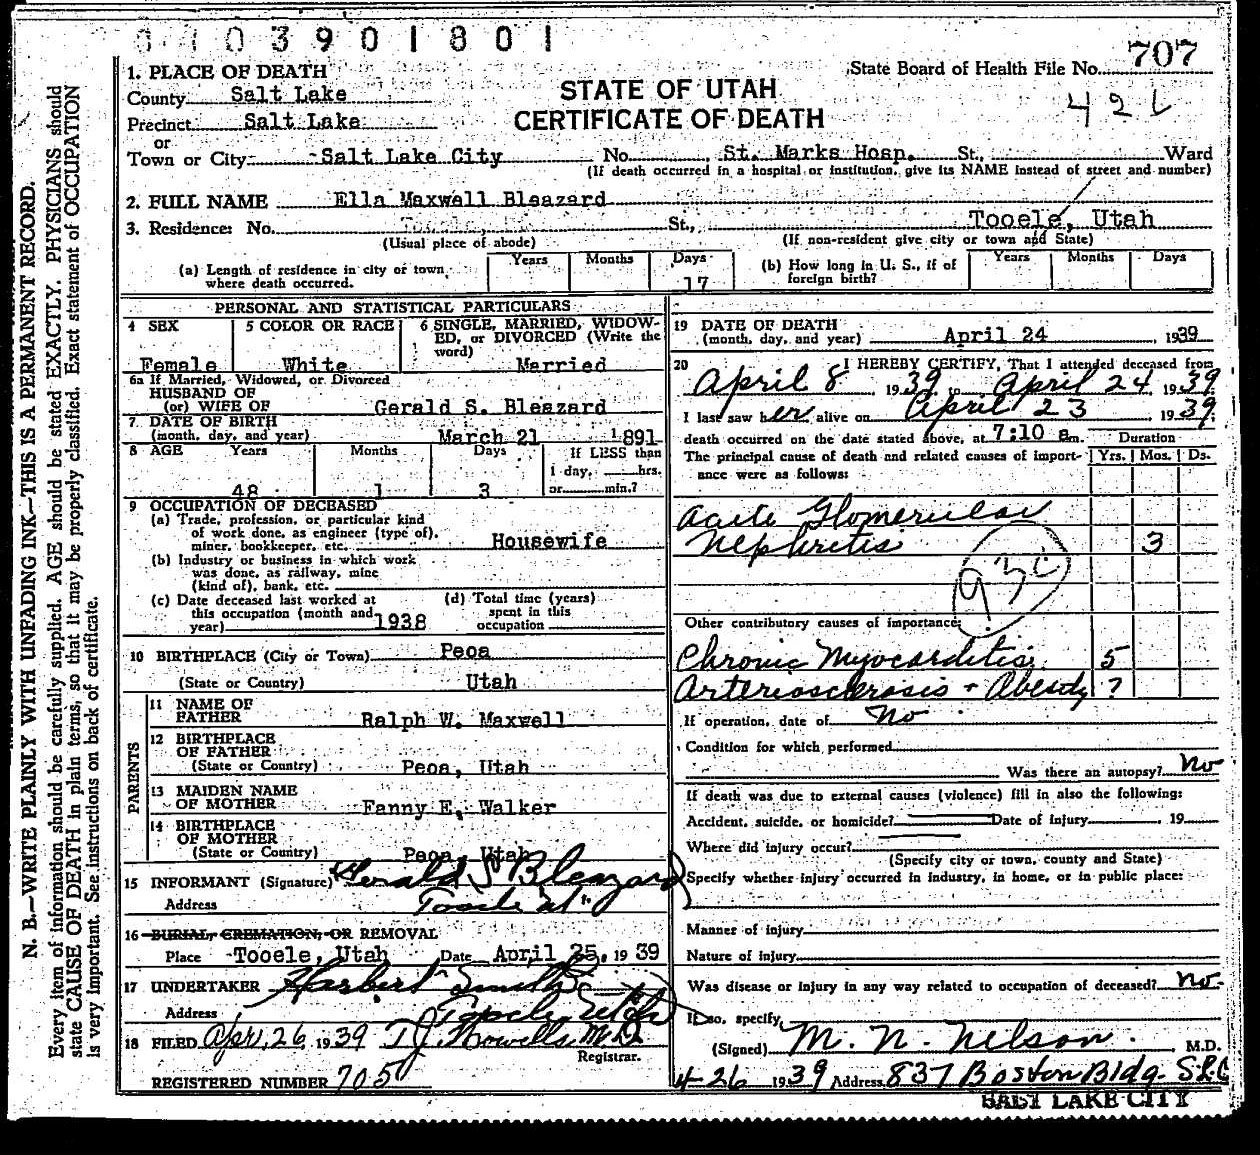 0403901801
707
State Board of Health File No.
STATE OF UTAH
CERTIFICATE OF DEATH
1. PLACE OF DEATH
County Salt Lake
Precinct Salt Lake
or
Town or City Salt Lake City No. St. Marks Hosp. St., Ward
(If death occurred in a hospital or institution, give its NAME instead of street and number)
2. FULL NAME Ella Maxwell Bleazard
3. Residence: No. Tooele, St., Tooele, Utah
(Usual place of abode) (If non-resident give city or town and State)
(a) Length of residence in city or town where death occurred. Years Months Days 17
(b) How long in U. S., if of foreign birth? Years Months Days
PERSONAL AND STATISTICAL PARTICULARS
4 SEX Female
5 COLOR OR RACE White
6 SINGLE, MARRIED, WIDOWED, or DIVORCED (Write the word) Married
6a If Married, Widowed, or Divorced
HUSBAND OF
(or) WIFE OF Gerald S. Bleazard
7 DATE OF BIRTH
(month, day, and year) March 21 1891
8 AGE Years 48 Months 1 Days 3 If LESS than 1 day, hrs. or min.?
9 OCCUPATION OF DECEASED
(a) Trade, profession, or particular kind
of work done, as engineer (type of),
miner, bookkeeper, etc. Housewife
(b) Industry or business in which work
was done, as railway, mine
(kind of), bank, etc.
(c) Date deceased last worked at
this occupation (month and
year) 1938
(d) Total time (years)
spent in this
occupation
10 BIRTHPLACE (City or Town) Peoa
(State or Country) Utah
PARENTS
11 NAME OF
FATHER Ralph W. Maxwell
12 BIRTHPLACE
OF FATHER
(State or Country) Peoa, Utah
13 MAIDEN NAME
OF MOTHER Fanny E. Walker
14 BIRTHPLACE
OF MOTHER
(State or Country) Peoa, Utah
15 INFORMANT (Signature) Gerald S Bleazard
Address Tooele Ut
16 BURIAL, CREMATION, OR REMOVAL
Place Tooele, Utah Date April 25, 1939
17 UNDERTAKER Harbert Smith
Address Tooele Utah
18 FILED Apr. 26, 1939 T J Howells M.D.
Registrar.
REGISTERED NUMBER 705
19 DATE OF DEATH
(month, day, and year) April 24 1939
20 I HEREBY CERTIFY, That I attended deceased from
April 8 1939 to April 24 1939
I last saw her alive on April 23 1939.
death occurred on the date stated above, at 7:10 a.m. Duration
The principal cause of death and related causes of importance were as follows: Yrs. Mos. Ds.
Acute Glomerular
Nephritis 3
Other contributory causes of importance:
Chronic Myocarditis 5
Arteriosclerosis + Obesity ?
If operation, date of No
Condition for which performed
Was there an autopsy? No
If death was due to external causes (violence) fill in also the following:
Accident, suicide, or homicide? Date of injury 19
Where did injury occur?
(Specify city or town, county and State)
Specify whether injury occurred in industry, in home, or in public place:
Manner of injury
Nature of injury
Was disease or injury in any way related to occupation of deceased? No
If so, specify
(Signed) M. N. Nelson. M.D.
4-26 1939 Address 837 Boston Bldg SLC
SALT LAKE CITY
N. B.—WRITE PLAINLY WITH UNFADING INK—THIS IS A PERMANENT RECORD.
Every item of information should be carefully supplied. AGE should be stated EXACTLY. PHYSICIANS should
state CAUSE OF DEATH in plain terms, so that it may be properly classified. Exact statement of OCCUPATION
is very important. See instructions on back of certificate.